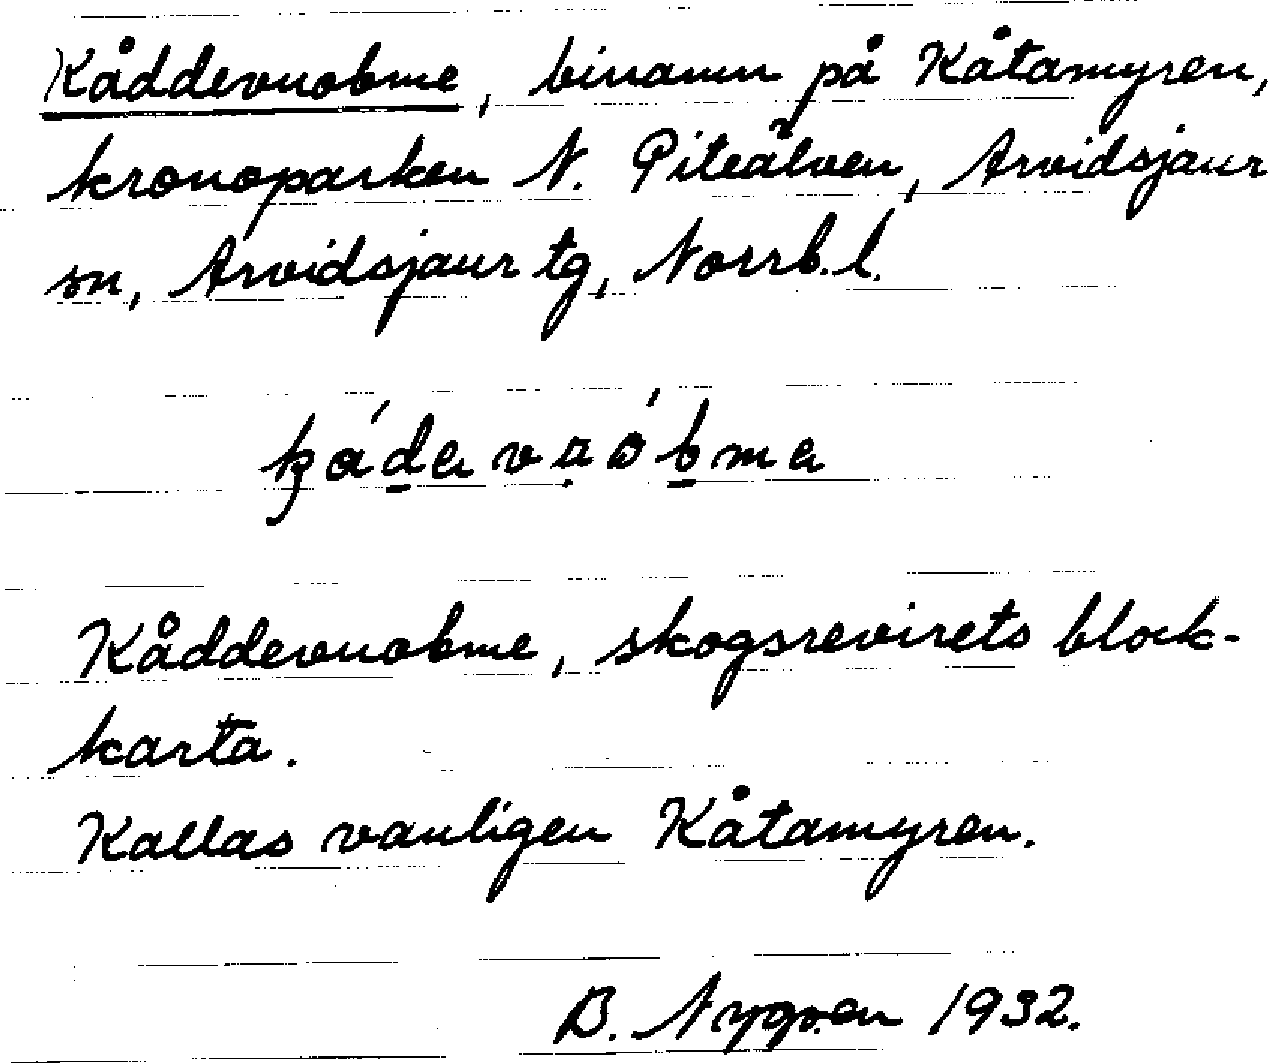 Kåddevuobme, binamn på Kåtamyren,
kronoparken N. Piteälven, Arvidsjaur
sn, Arvidsjaur tg, Norrb. l.
Kåddevuobme, skogsrevirets block-
karta.
Kallas vanligen Kåtamyren.
B. Nygren 1932.